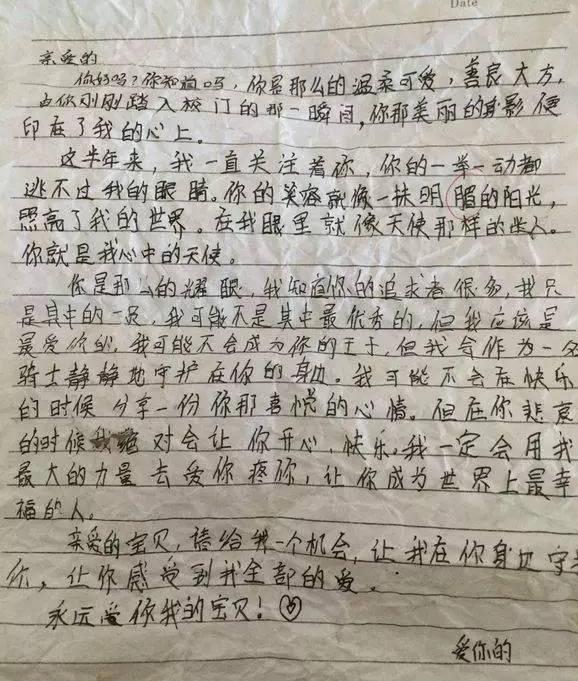 Date
亲爱的
你好吗？你知道吗，你是那么的温柔可爱，善良大方，
当你刚刚踏入校门的那一瞬间，你那美丽的身影便
印在了我的心上。
这半年来，我一直关注着你，你的一举一动都
逃不过我的眼睛。你的笑容就像一抹明媚的阳光，
照亮了我的世界。在我眼里就像天使那样的坐人。
你就是我心中的天使。
你是那么的耀眼，我知道你的追求者很多，我只
是其中的一员，我可能不是其中最优秀的，但我应该是
最爱你的，我可能不会成为你的王子，但我会作为一名
骑士静静地守护在你的身边。我可能不会在快乐
的时候分享一份你那喜悦的心情。但在你悲哀
的时候我绝对会让你开心、快乐。我一定会用我
最大的力量去爱你疼你，让你成为世界上最幸
福的人。
亲爱的宝贝，请给我一个机会，让我在你身边守
你，让你感受到我全部的爱。
永远爱你我的宝贝！
爱你的